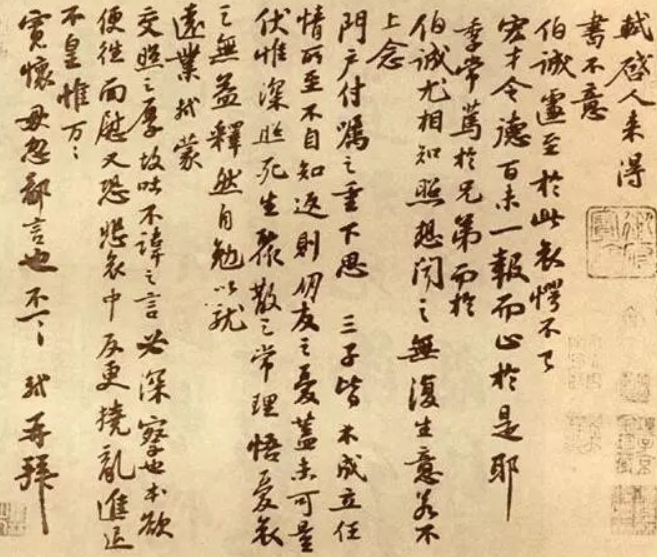 軾啓人来得
書不意
伯誠遽至於此哀愕不已
宏才令德百未一報而止於是耶
季常篤於兄弟而於
伯誠尤相知照想聞之無復生意若不
上念
門户付囑之重下思三子皆未成立任
情所至不自知返則朋友之憂蓋未可量
伏惟深照死生聚散之常理悟憂哀
之無益釋然自勉以就
遠業軾蒙
交照之厚故吐不諱之言必深察也本欲
便往面慰又恐悲哀中反更撓亂進退
不皇惟万万
寬懷毋忽鄙言也不一一軾再拜